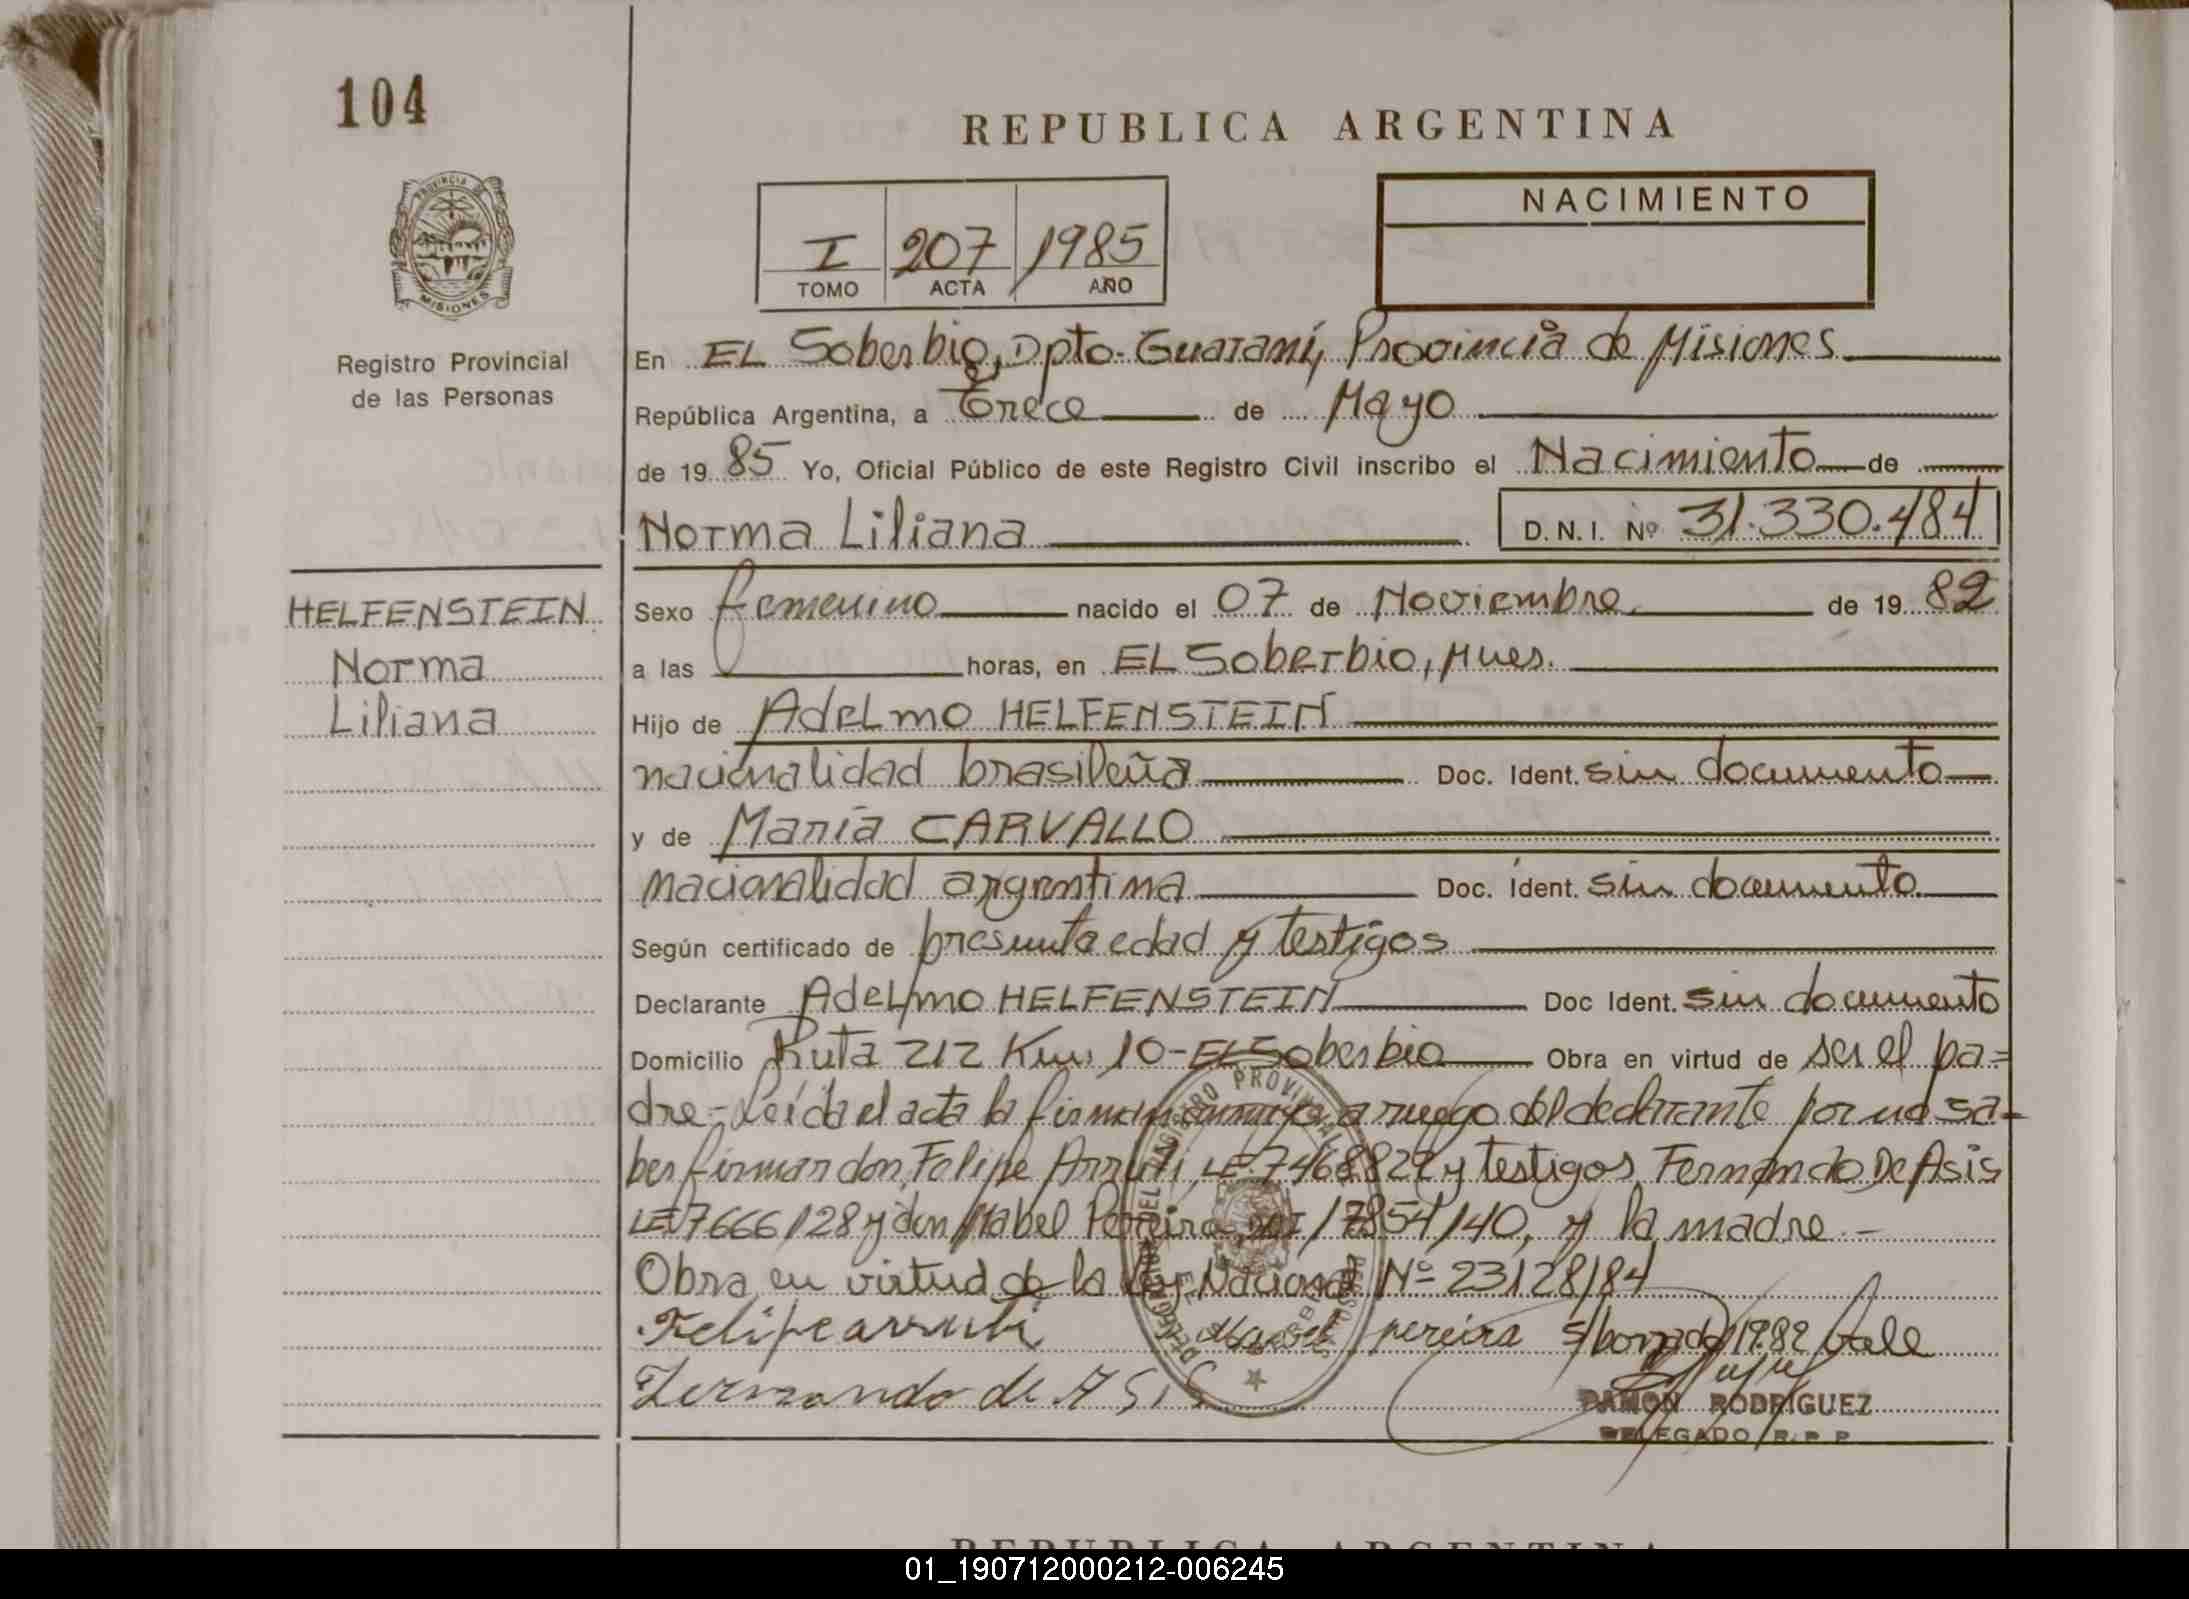 104
REPUBLICA ARGENTINA
PROVINCIA DE
MISIONES
Registro Provincial
de las Personas
I 207 1985
TOMO ACTA AÑO
NACIMIENTO
En EL Soberbio, Dpto. Guaraní, Provincia de Misiones
República Argentina, a Trece de Mayo
de 1985 Yo, Oficial Público de este Registro Civil inscribo el Nacimiento de
Norma Liliana D.N.I. Nº 31.330.484
HELFENSTEIN
Norma
Liliana
Sexo femenino nacido el 07 de Noviembre de 1982
a las horas, en EL Soberbio, Mnes.
Hijo de Adelmo HELFENSTEIN
nacionalidad brasileña Doc. Ident. sin documento
y de María CARVALLO
nacionalidad argentina Doc. Ident. sin documento
Según certificado de presunta edad y testigos
Declarante Adelmo HELFENSTEIN Doc Ident. sin documento
Domicilio Ruta 212 Km. 10-El Soberbio Obra en virtud de ser el pa=
dre-Leída el acta la firman conmigo a ruego del declarante por no sa=
ber firmar don Felipe Arruti, LE.7468822 y testigos Fernando De Asis
LE.7666128 y don Mabel Pereira, DNI 17854140, y la madre.-
Obra en virtud de la Ley Nacional Nº 23128/84
Felipe arruti Mabel pereira s/borrado/1982 Vale
Fernando de ASIS
RAMON RODRIGUEZ
DELEGADO R.P.P
DELEGACION DEL REGISTRO PROVINCIAL PERSONAS
REPUBLICA ARGENTINA
01_190712000212-006245